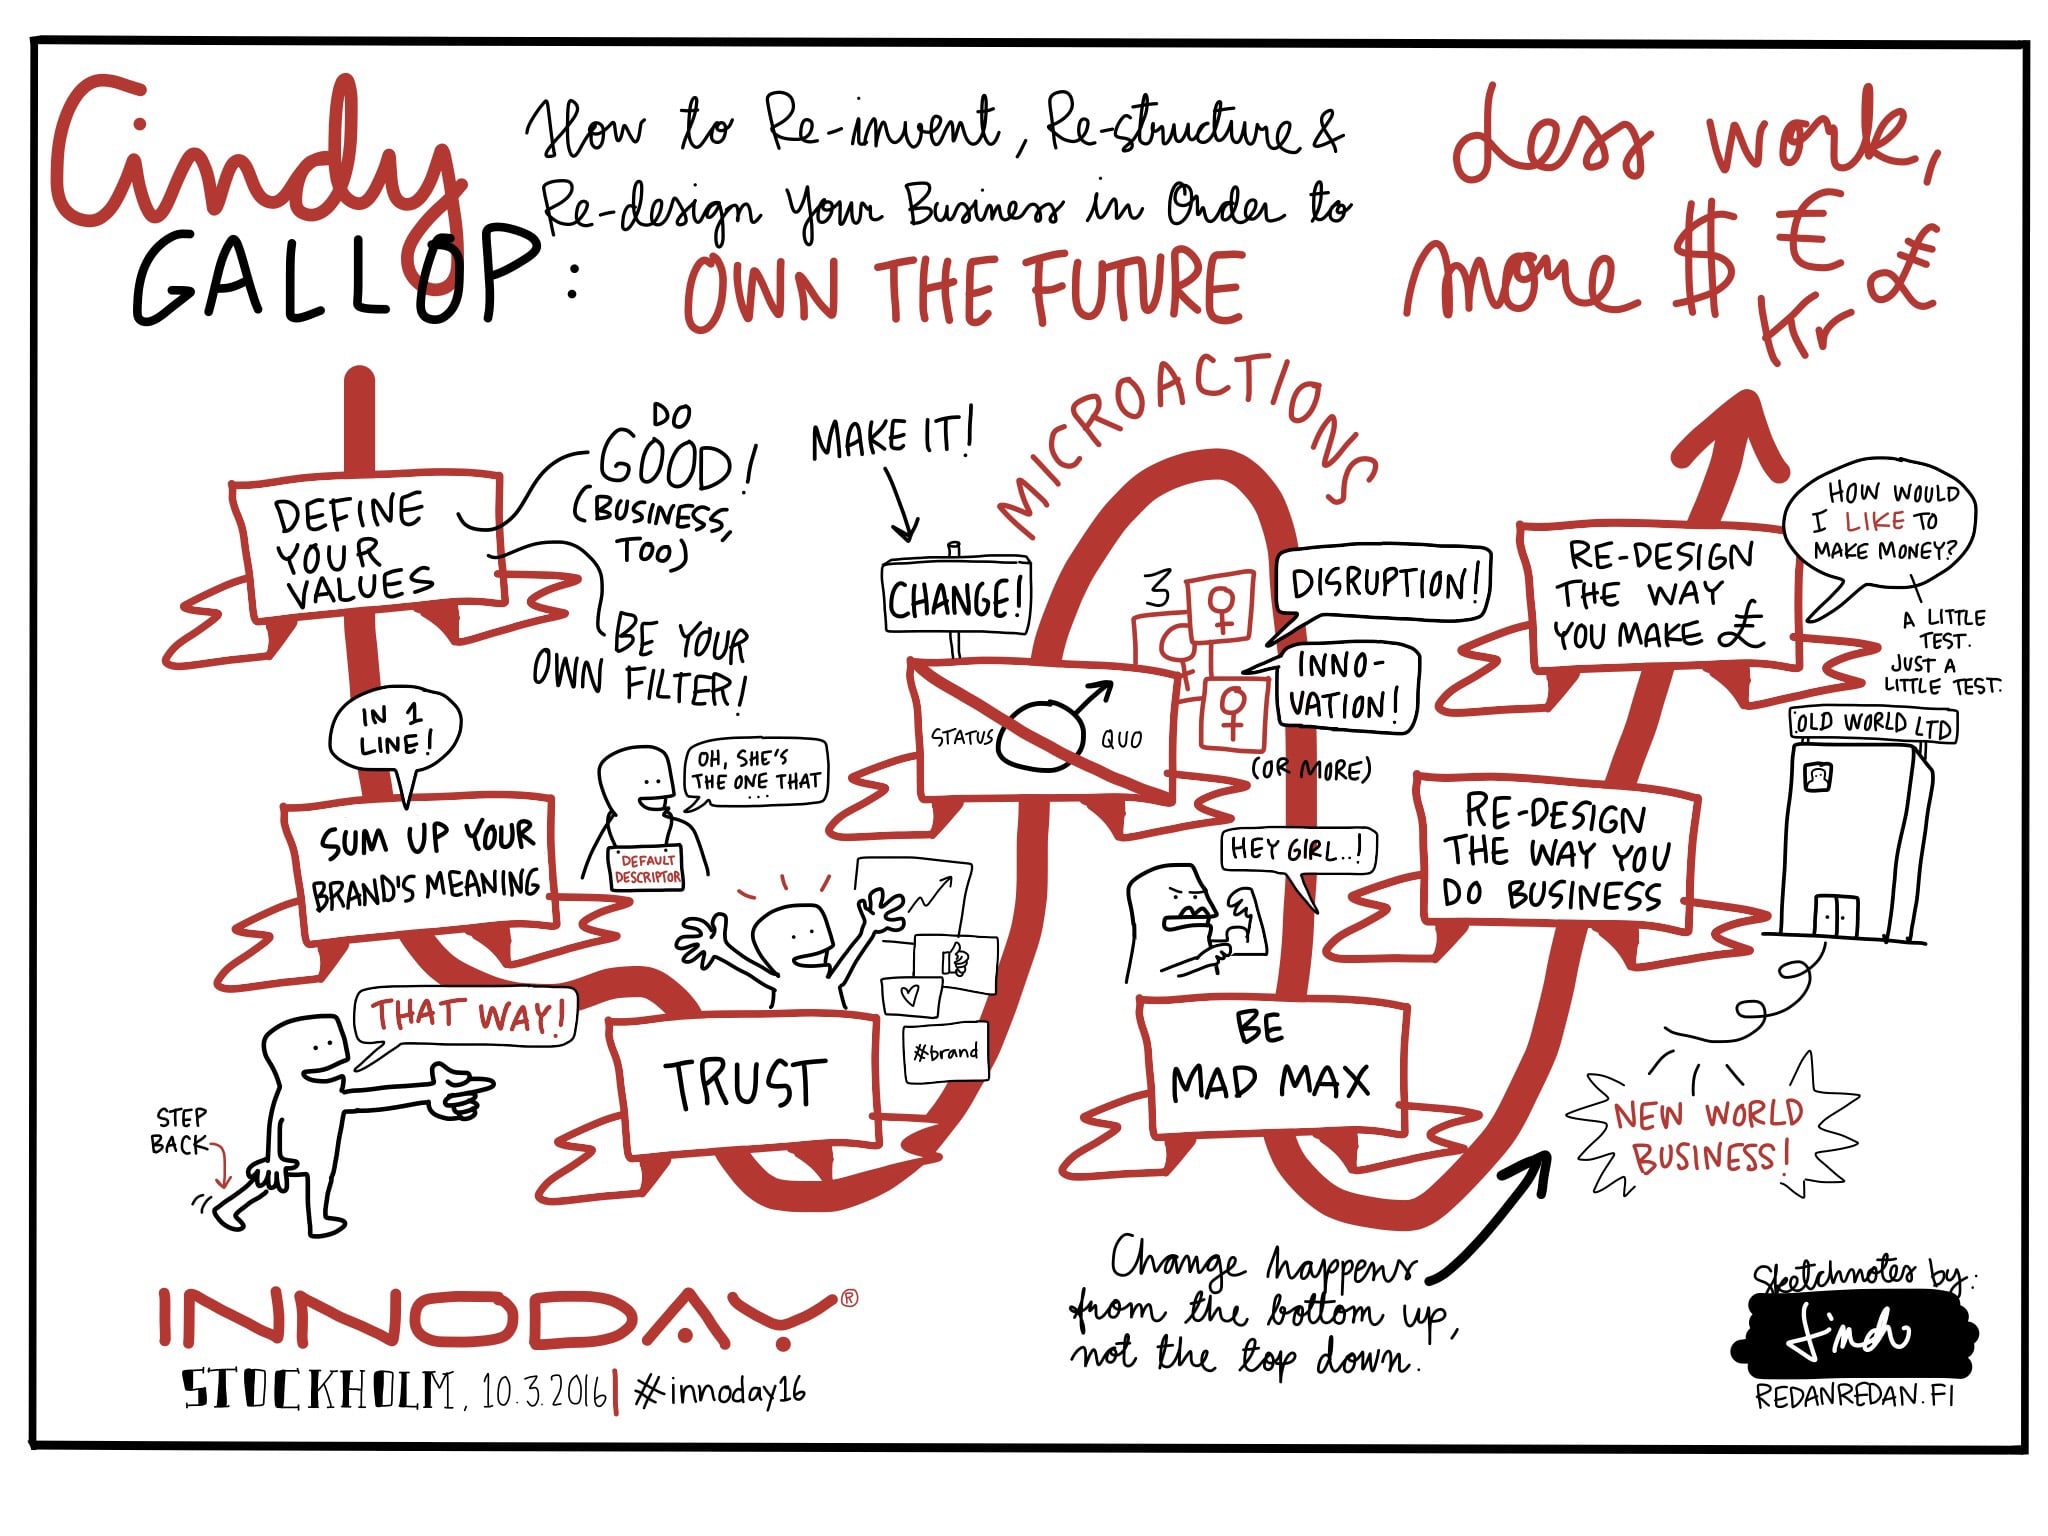 Cindy
GALLOP:
How to Re-invent, Re-structure &
Re-design Your Business in Order to
OWN THE FUTURE
Less work,
more $ € £
Kr
DEFINE
YOUR
VALUES
DO
GOOD!
(BUSINESS,
TOO)
BE YOUR
OWN FILTER!
IN 1
LINE!
SUM UP YOUR
BRAND'S MEANING
OH, SHE'S
THE ONE THAT
...
DEFAULT
DESCRIPTOR
THAT WAY!
STEP
BACK
TRUST
#brand
MAKE IT!
CHANGE!
STATUS QUO
MICROACTIONS
3
DISRUPTION!
INNO-
VATION!
(OR MORE)
HEY GIRL..!
BE
MAD MAX
Change happens
from the bottom up,
not the top down.
RE-DESIGN
THE WAY YOU
DO BUSINESS
OLD WORLD LTD
NEW WORLD
BUSINESS!
RE-DESIGN
THE WAY
YOU MAKE £
HOW WOULD
I LIKE TO
MAKE MONEY?
A LITTLE
TEST.
JUST A
LITTLE TEST.
INNODAY®
STOCKHOLM, 10.3.2016 | #innoday16
Sketchnotes by:
REDANREDAN.FI